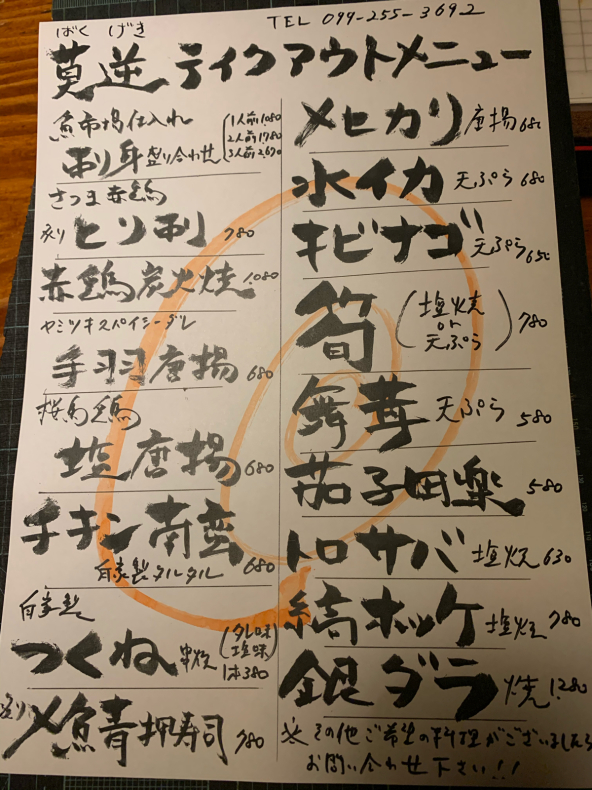 TEL 099-255-3692
ばく げき
莫逆 テイクアウトメニュー
魚市場仕入れ
刺身盛り合わせ
1人前1,080
2人前1,780
3人前2,670
さつま赤鶏
炙りとり刺 780
赤鶏炭火焼 1,080
ヤミツキスパイシーダレ
手羽唐揚 680
桜島鶏
塩唐揚 680
チキン南蛮
自家製タルタル 680
自家製
つくね串焼
(タレ味
塩味)
1本380
炙り〆鯖押寿司 980
メヒカリ唐揚 680
水イカ天ぷら 680
キビナゴ天ぷら 650
筍
(塩焼
or
天ぷら) 780
舞茸天ぷら 580
茄子田楽 580
トロサバ塩焼 630
縞ホッケ塩焼 780
銀ダラ焼 1,280
※その他ご希望の料理がございましたら
お問い合わせ下さい!!